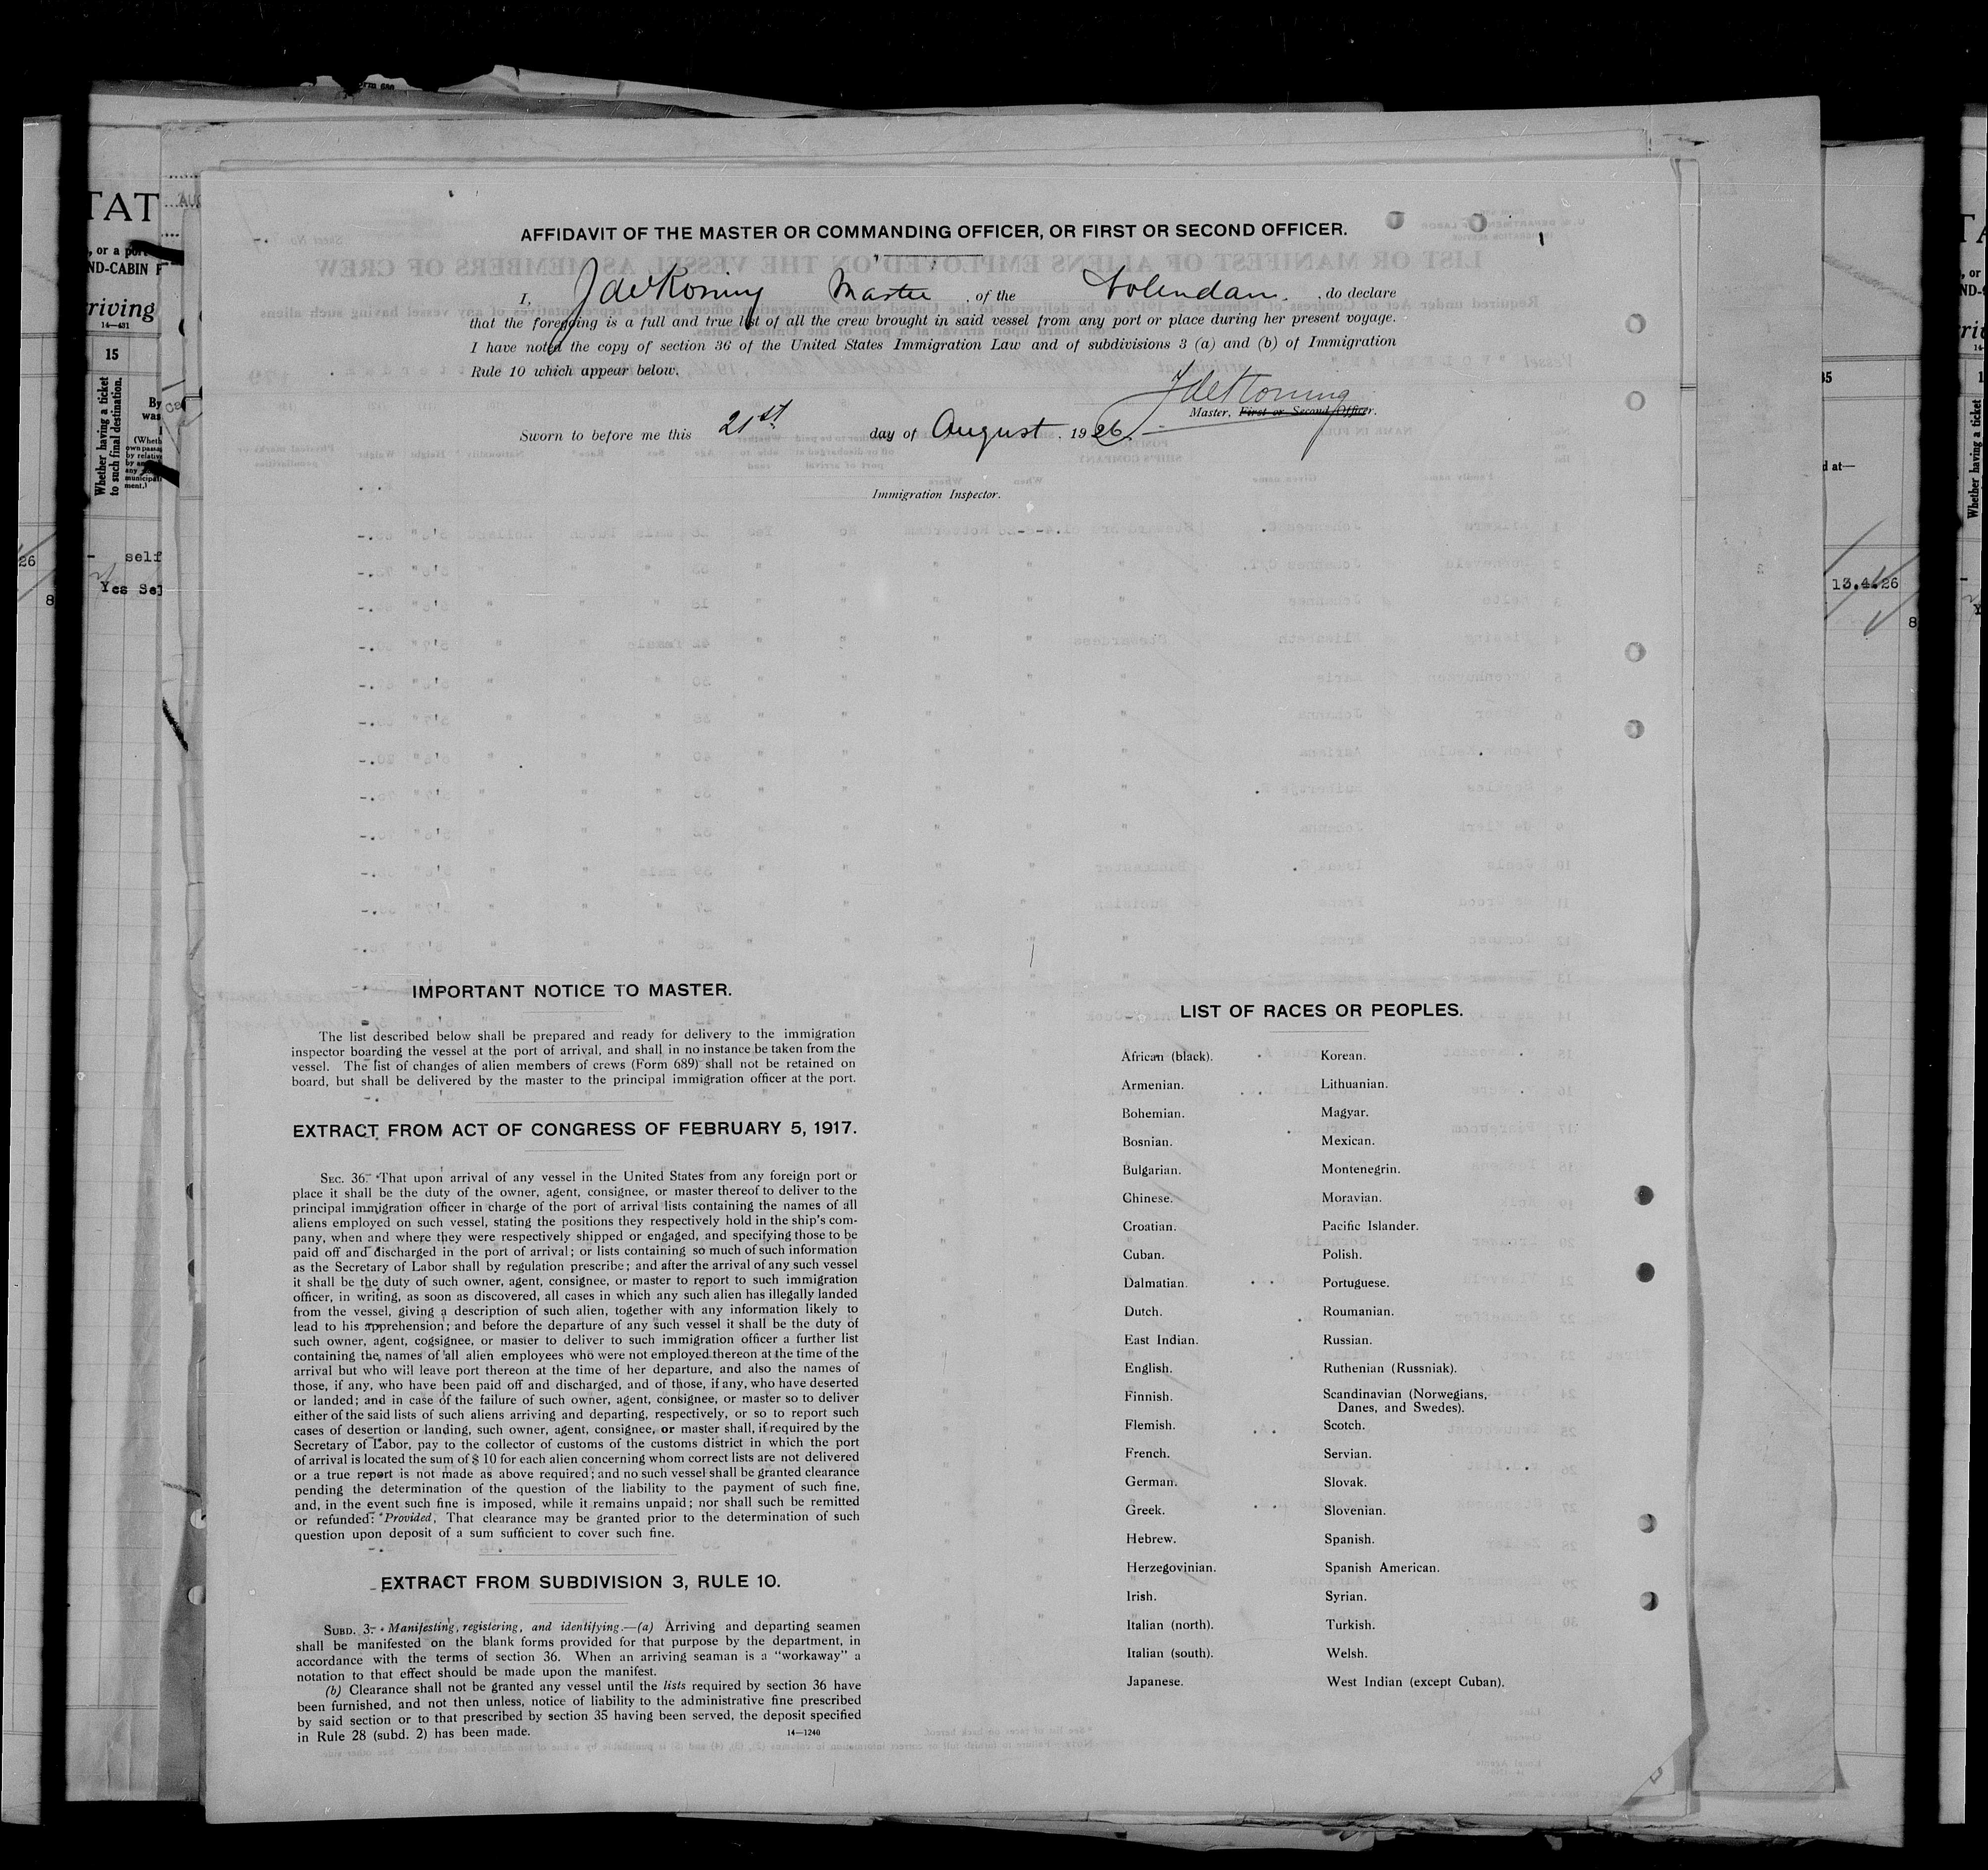 AFFIDAVIT OF THE MASTER OR COMMANDING OFFICER, OR FIRST OR SECOND OFFICER.
I, J de Koning Master, of the Volendam, do declare
that the foregoing is a full and true list of all the crew brought in said vessel from any port or place during her present voyage.
I have noted the copy of section 36 of the United States Immigration Law and of subdivisions 3 (a) and (b) of Immigration
Rule 10 which appear below.
J de Koning
Master, First or Second Officer.
Sworn to before me this 21st day of August, 1926.
Immigration Inspector.
IMPORTANT NOTICE TO MASTER.
The list described below shall be prepared and ready for delivery to the immigration
inspector boarding the vessel at the port of arrival, and shall in no instance be taken from the
vessel. The list of changes of alien members of crews (Form 689) shall not be retained on
board, but shall be delivered by the master to the principal immigration officer at the port.
EXTRACT FROM ACT OF CONGRESS OF FEBRUARY 5, 1917.
SEC. 36. That upon arrival of any vessel in the United States from any foreign port or
place it shall be the duty of the owner, agent, consignee, or master thereof to deliver to the
principal immigration officer in charge of the port of arrival lists containing the names of all
aliens employed on such vessel, stating the positions they respectively hold in the ship's com-
pany, when and where they were respectively shipped or engaged, and specifying those to be
paid off and discharged in the port of arrival; or lists containing so much of such information
as the Secretary of Labor shall by regulation prescribe; and after the arrival of any such vessel
it shall be the duty of such owner, agent, consignee, or master to report to such immigration
officer, in writing, as soon as discovered, all cases in which any such alien has illegally landed
from the vessel, giving a description of such alien, together with any information likely to
lead to his apprehension; and before the departure of any such vessel it shall be the duty of
such owner, agent, cogsignee, or master to deliver to such immigration officer a further list
containing the names of all alien employees who were not employed thereon at the time of the
arrival but who will leave port thereon at the time of her departure, and also the names of
those, if any, who have been paid off and discharged, and of those, if any, who have deserted
or landed; and in case of the failure of such owner, agent, consignee, or master so to deliver
either of the said lists of such aliens arriving and departing, respectively, or so to report such
cases of desertion or landing, such owner, agent, consignee, or master shall, if required by the
Secretary of Labor, pay to the collector of customs of the customs district in which the port
of arrival is located the sum of $ 10 for each alien concerning whom correct lists are not delivered
or a true report is not made as above required; and no such vessel shall be granted clearance
pending the determination of the question of the liability to the payment of such fine,
and, in the event such fine is imposed, while it remains unpaid; nor shall such be remitted
or refunded: Provided, That clearance may be granted prior to the determination of such
question upon deposit of a sum sufficient to cover such fine.
EXTRACT FROM SUBDIVISION 3, RULE 10.
SUBD. 3. Manifesting, registering, and identifying.—(a) Arriving and departing seamen
shall be manifested on the blank forms provided for that purpose by the department, in
accordance with the terms of section 36. When an arriving seaman is a "workaway" a
notation to that effect should be made upon the manifest.
(b) Clearance shall not be granted any vessel until the lists required by section 36 have
been furnished, and not then unless, notice of liability to the administrative fine prescribed
by said section or to that prescribed by section 35 having been served, the deposit specified
in Rule 28 (subd. 2) has been made.
14—1240
LIST OF RACES OR PEOPLES.
African (black). Korean.
Armenian. Lithuanian.
Bohemian. Magyar.
Bosnian. Mexican.
Bulgarian. Montenegrin.
Chinese. Moravian.
Croatian. Pacific Islander.
Cuban. Polish.
Dalmatian. Portuguese.
Dutch. Roumanian.
East Indian. Russian.
English. Ruthenian (Russniak).
Finnish. Scandinavian (Norwegians,
Danes, and Swedes).
Flemish. Scotch.
French. Servian.
German. Slovak.
Greek. Slovenian.
Hebrew. Spanish.
Herzegovinian. Spanish American.
Irish. Syrian.
Italian (north). Turkish.
Italian (south). Welsh.
Japanese. West Indian (except Cuban).